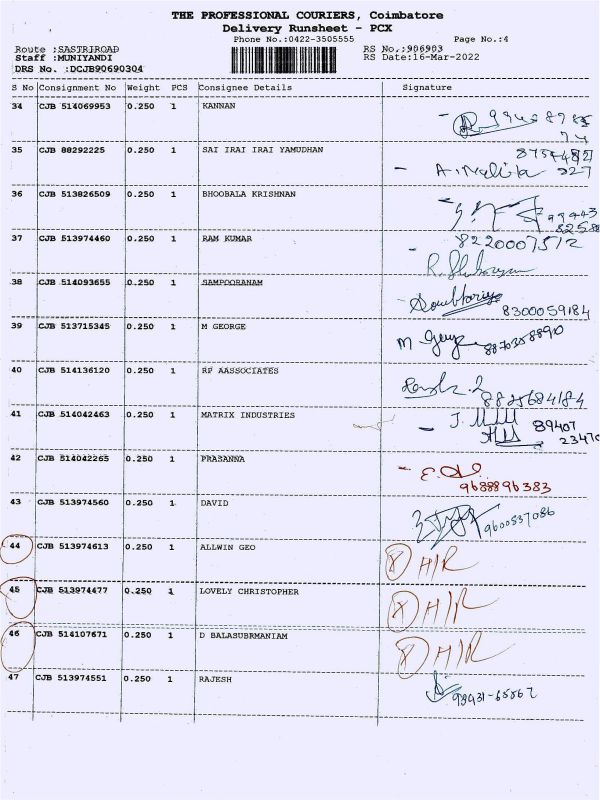 THE PROFESSIONAL COURIERS, Coimbatore
Delivery Runsheet - PCX
Phone No.:0422-3505555 Page No.:4
Route :SASTRIROAD RS No.:906903
Staff :MUNIYANDI RS Date:16-Mar-2022
DRS No. :DCJB90690304
S No Consignment No Weight PCS Consignee Details Signature
34 CJB 514069953 0.250 1 KANNAN
35 CJB 88292225 0.250 1 SAI IRAI IRAI YAMUDHAN
36 CJB 513826509 0.250 1 BHOOBALA KRISHNAN
37 CJB 513974460 0.250 1 RAM KUMAR 8220007512
38 CJB 514093655 0.250 1 SAMPOORANAM
8300059184
39 CJB 513715345 0.250 1 M GEORGE
8870358890
40 CJB 514136120 0.250 1 RF AASSOCIATES
8825684184
41 CJB 514042463 0.250 1 MATRIX INDUSTRIES 89407
23470
42 CJB 514042265 0.250 1 PRASANNA
9688896383
43 CJB 513974560 0.250 1 DAVID 9600537086
44 CJB 513974613 0.250 1 ALLWIN GEO X H/R
45 CJB 513974477 0.250 1 LOVELY CHRISTOPHER X H/R
46 CJB 514107671 0.250 1 D BALASUBRMANIAM X H/R
47 CJB 513974551 0.250 1 RAJESH